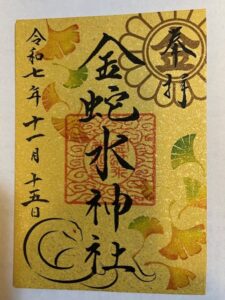 奉拝
金蛇水神社
令和七年十一月十五日